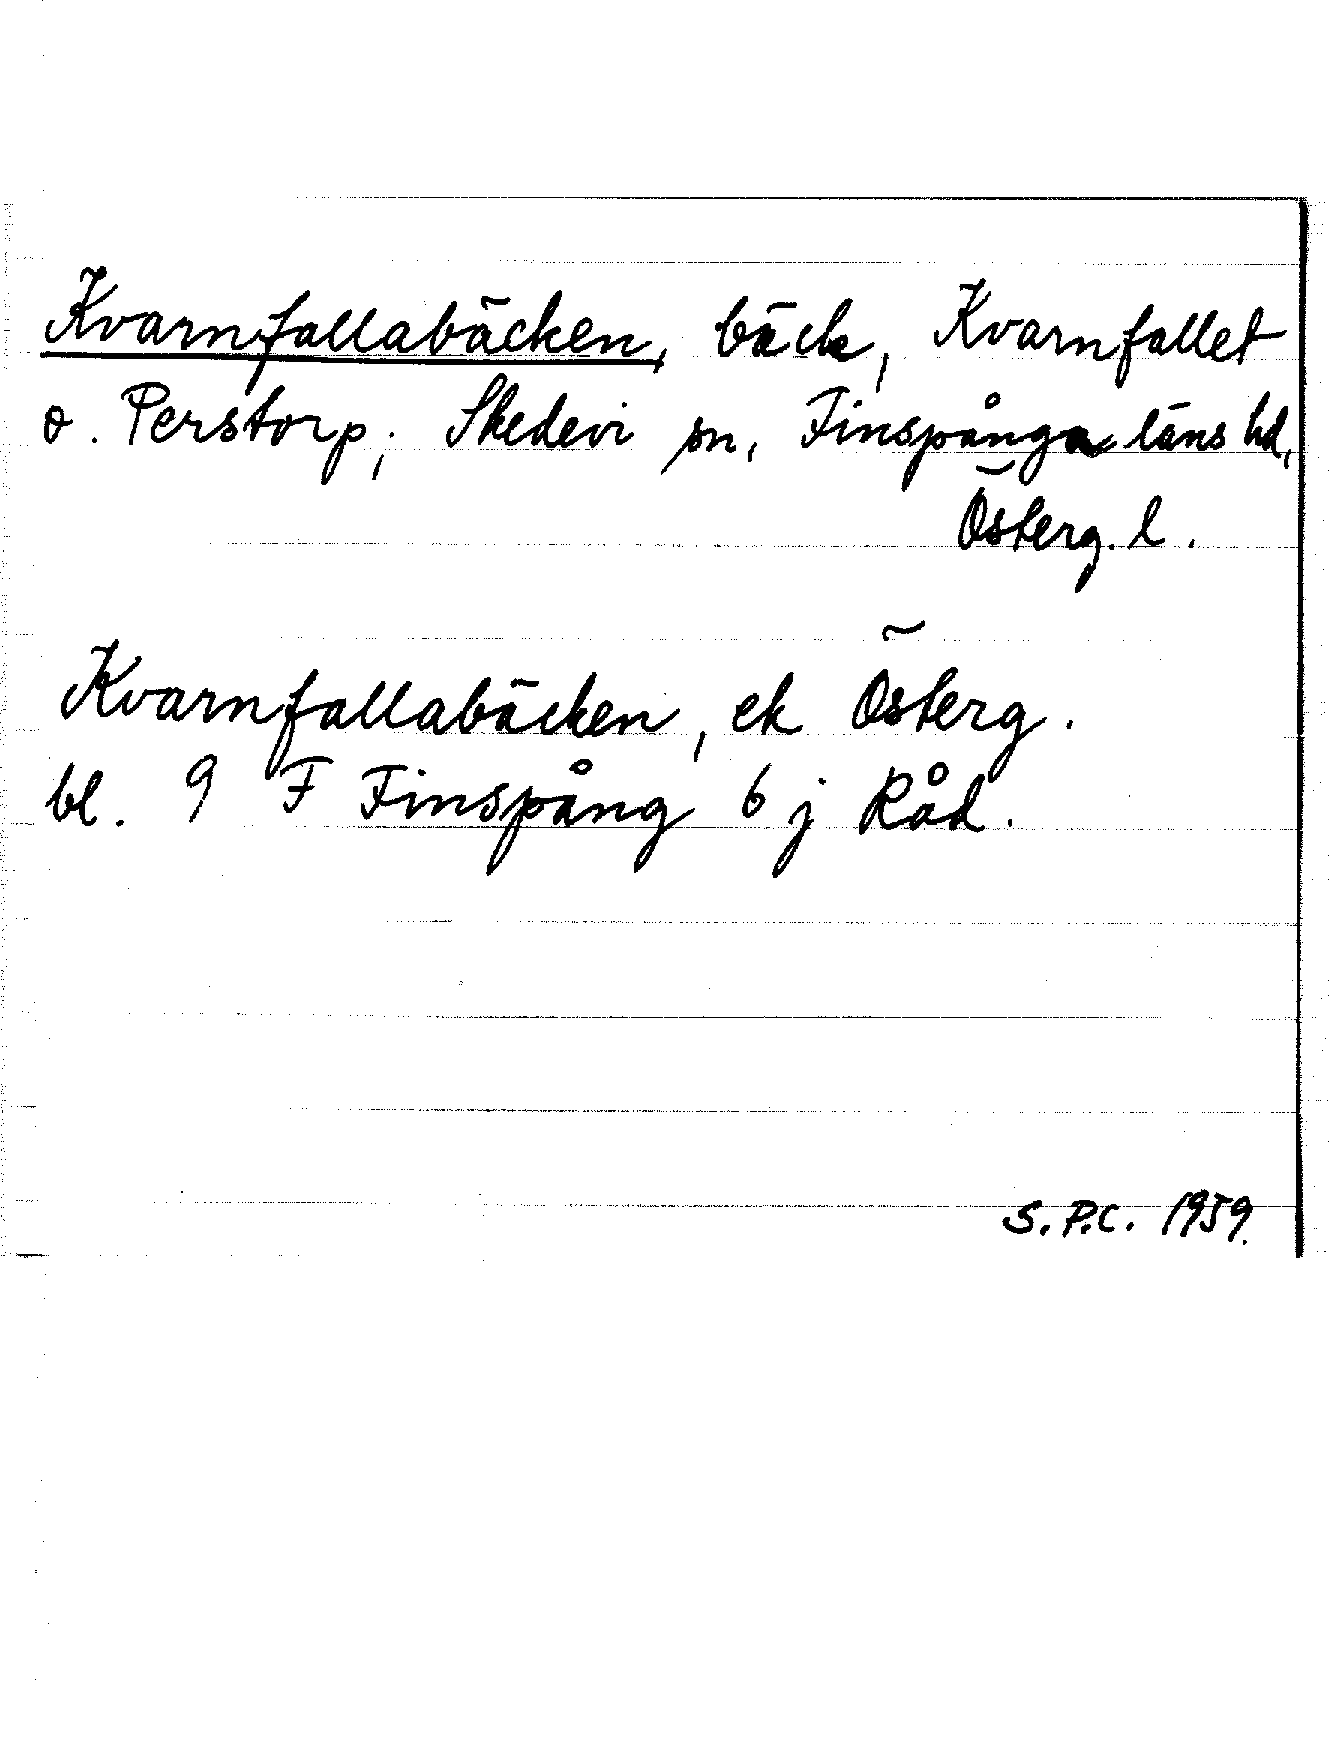 Kvarnfallabäcken, bäck, Kvarnfallet
o. Perstorp, Skedevi sn, Finspånga läns hd,
Österg. l.
Kvarnfallabäcken, ek Österg.
bl. 9 F Finspång 6 j Råd.
S.P.C. 1959.